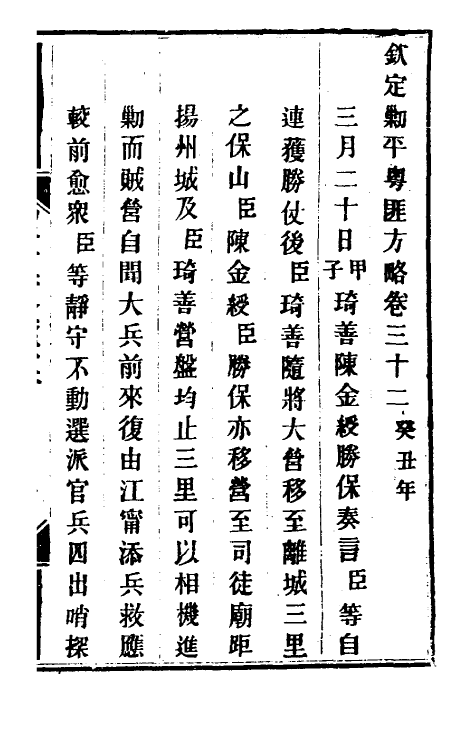 欽定勦平粵匪方略卷三十二癸丑年
三月二十日甲子琦善陳金綬勝保奏言臣等自
連獲勝仗後臣琦善隨將大營移至離城三里
之保山臣陳金綬臣勝保亦移營至司徒廟距
揚州城及臣琦善營盤均止三里可以相機進
勦而賊營自聞大兵前來復由江甯添兵救應
較前愈衆臣等靜守不動選派官兵四出哨探